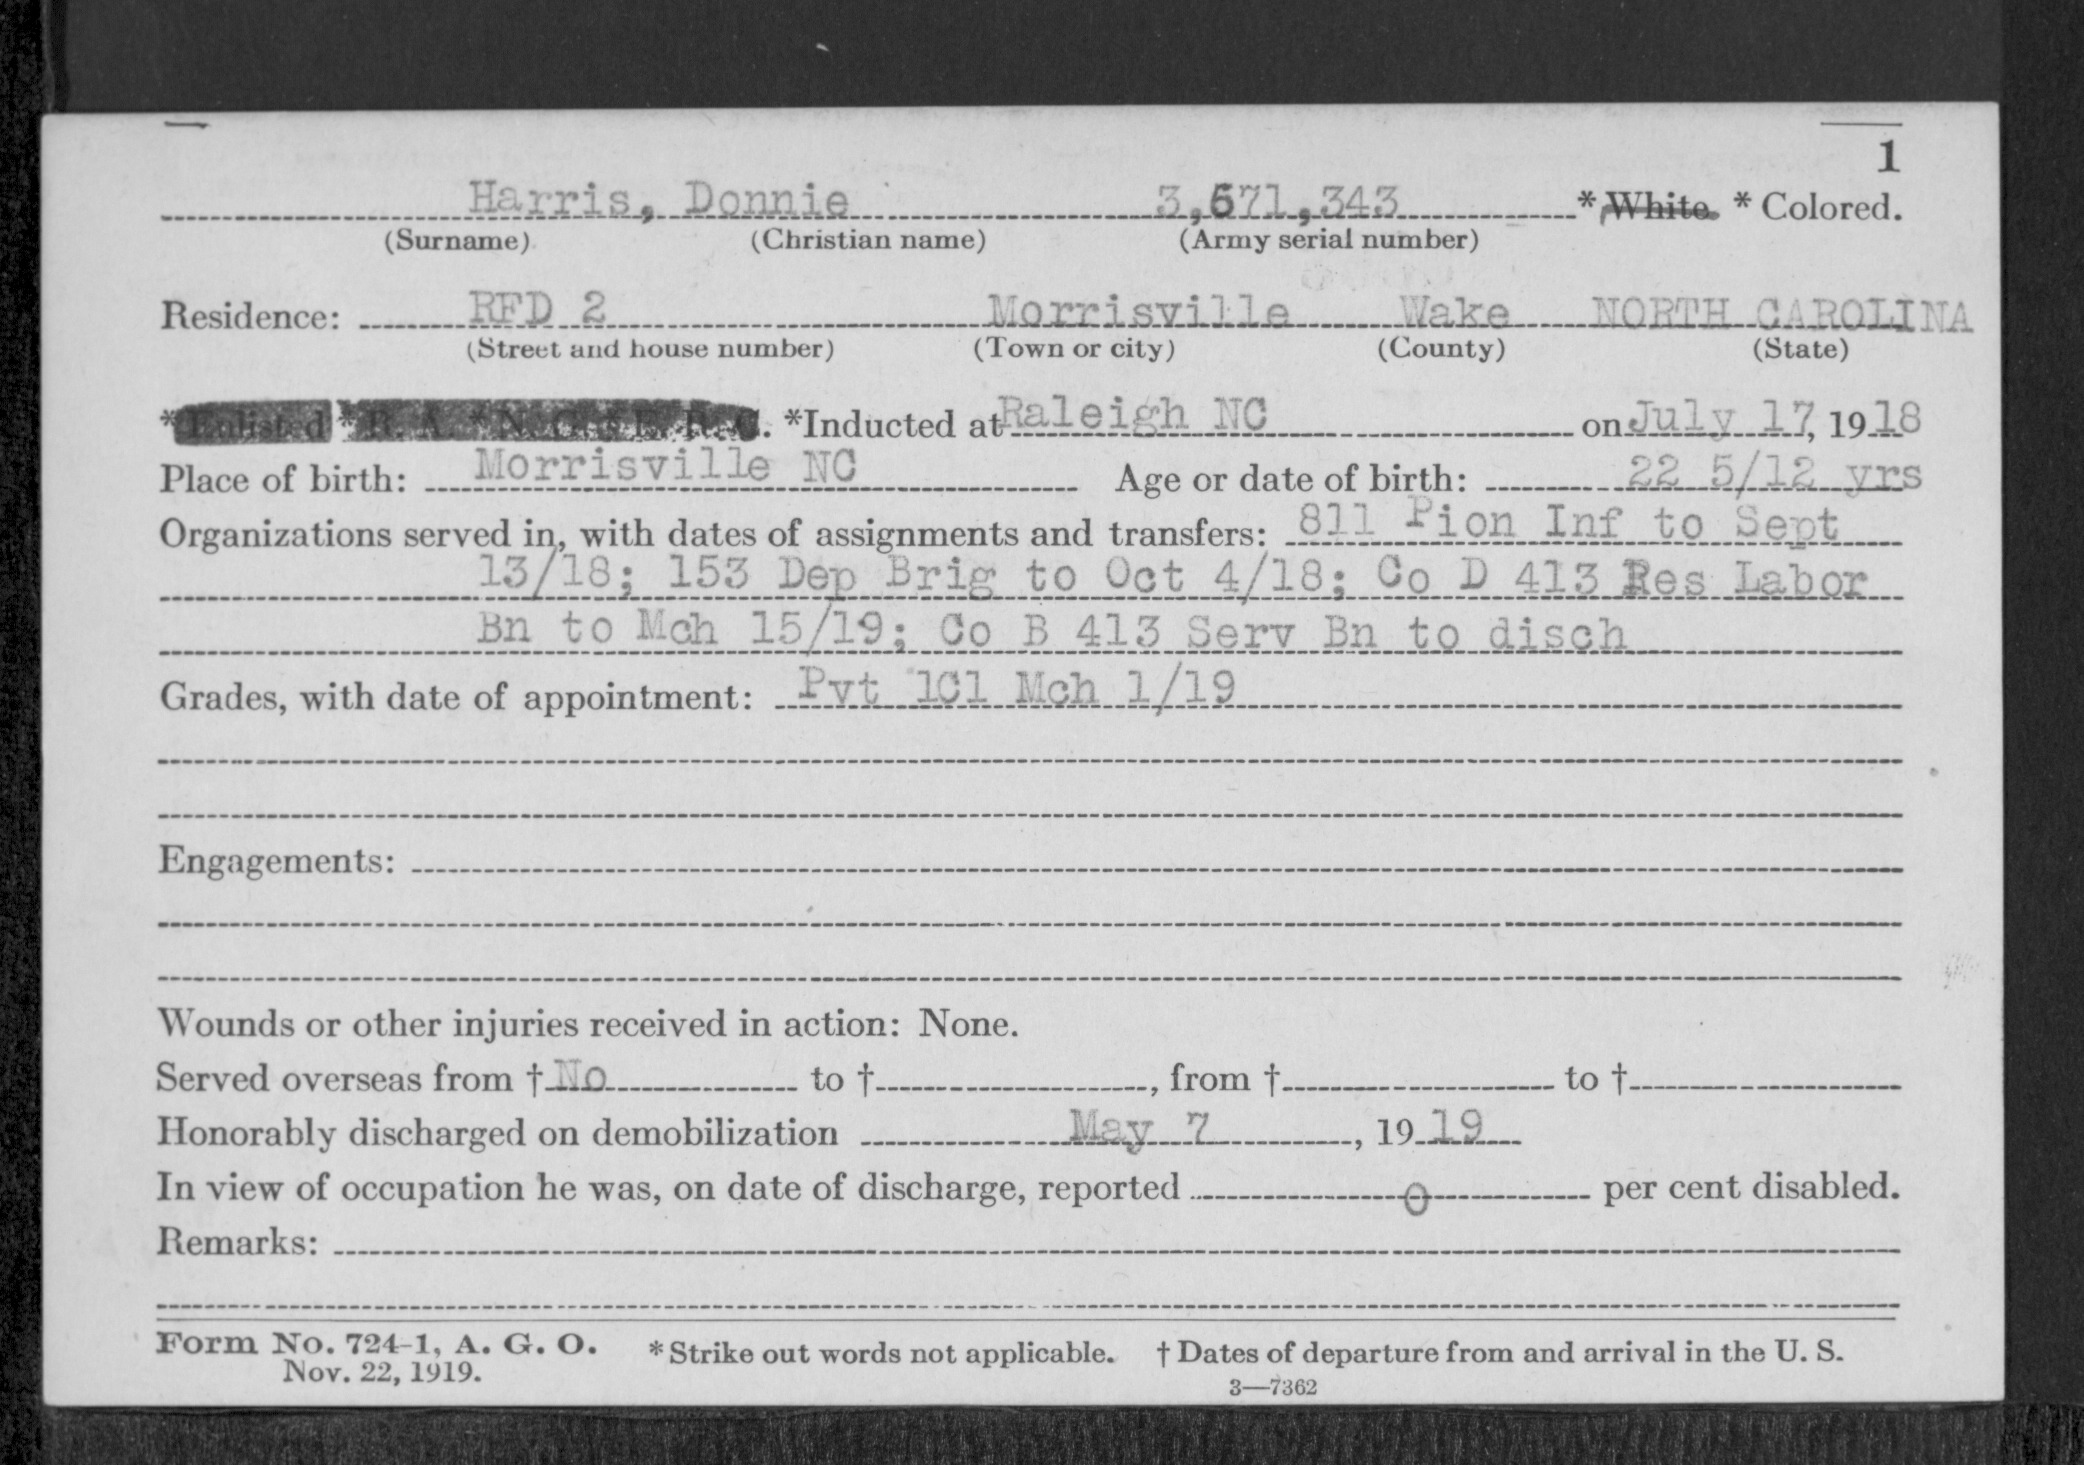 1
Harris, Donnie 3,671,343 * White. * Colored.
(Surname) (Christian name) (Army serial number)
Residence: RFD 2 Morrisville Wake NORTH CAROLINA
(Street and house number) (Town or city) (County) (State)
*Enlisted *R. A. *N. G. *E. R. C. *Inducted at Raleigh NC on July 17, 1918
Place of birth: Morrisville NC Age or date of birth: 22 5/12 yrs
Organizations served in, with dates of assignments and transfers: 811 Pion Inf to Sept
13/18; 153 Dep Brig to Oct 4/18; Co D 413 Res Labor
Bn to Mch 15/19; Co B 413 Serv Bn to disch
Grades, with date of appointment: Pvt 1Cl Mch 1/19
Engagements:
Wounds or other injuries received in action: None.
Served overseas from † No to †, from † to †
Honorably discharged on demobilization May 7, 1919
In view of occupation he was, on date of discharge, reported 0 per cent disabled.
Remarks:
Form No. 724-1, A. G. O. *Strike out words not applicable. † Dates of departure from and arrival in the U. S.
Nov. 22, 1919.
3—7362